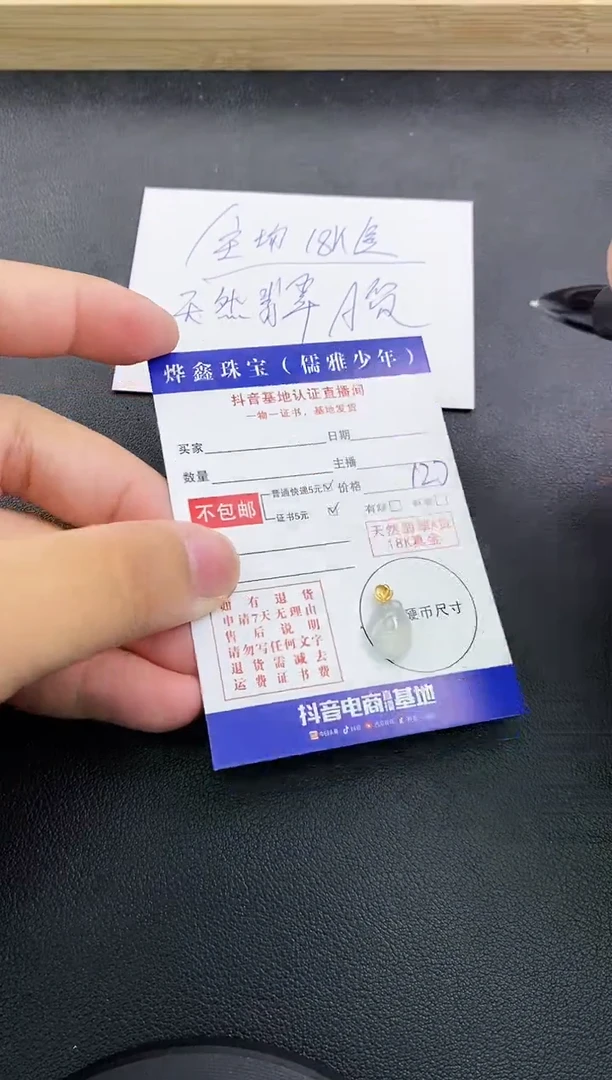 全场18K金
天然翡翠A货
烨鑫珠宝(儒雅少年)
抖音基地认证直播间
一物一证书,基地发货
买家 日期
数量 主播
不包邮 普通快递5元 价格 120
证书5元 有
天然翡翠A货
18K真金
硬币尺寸
如有退货
申请7天无理由
售后说明
请勿写任何文字
退货需减去
运费证书费
抖音电商直播基地
今日头条 抖音